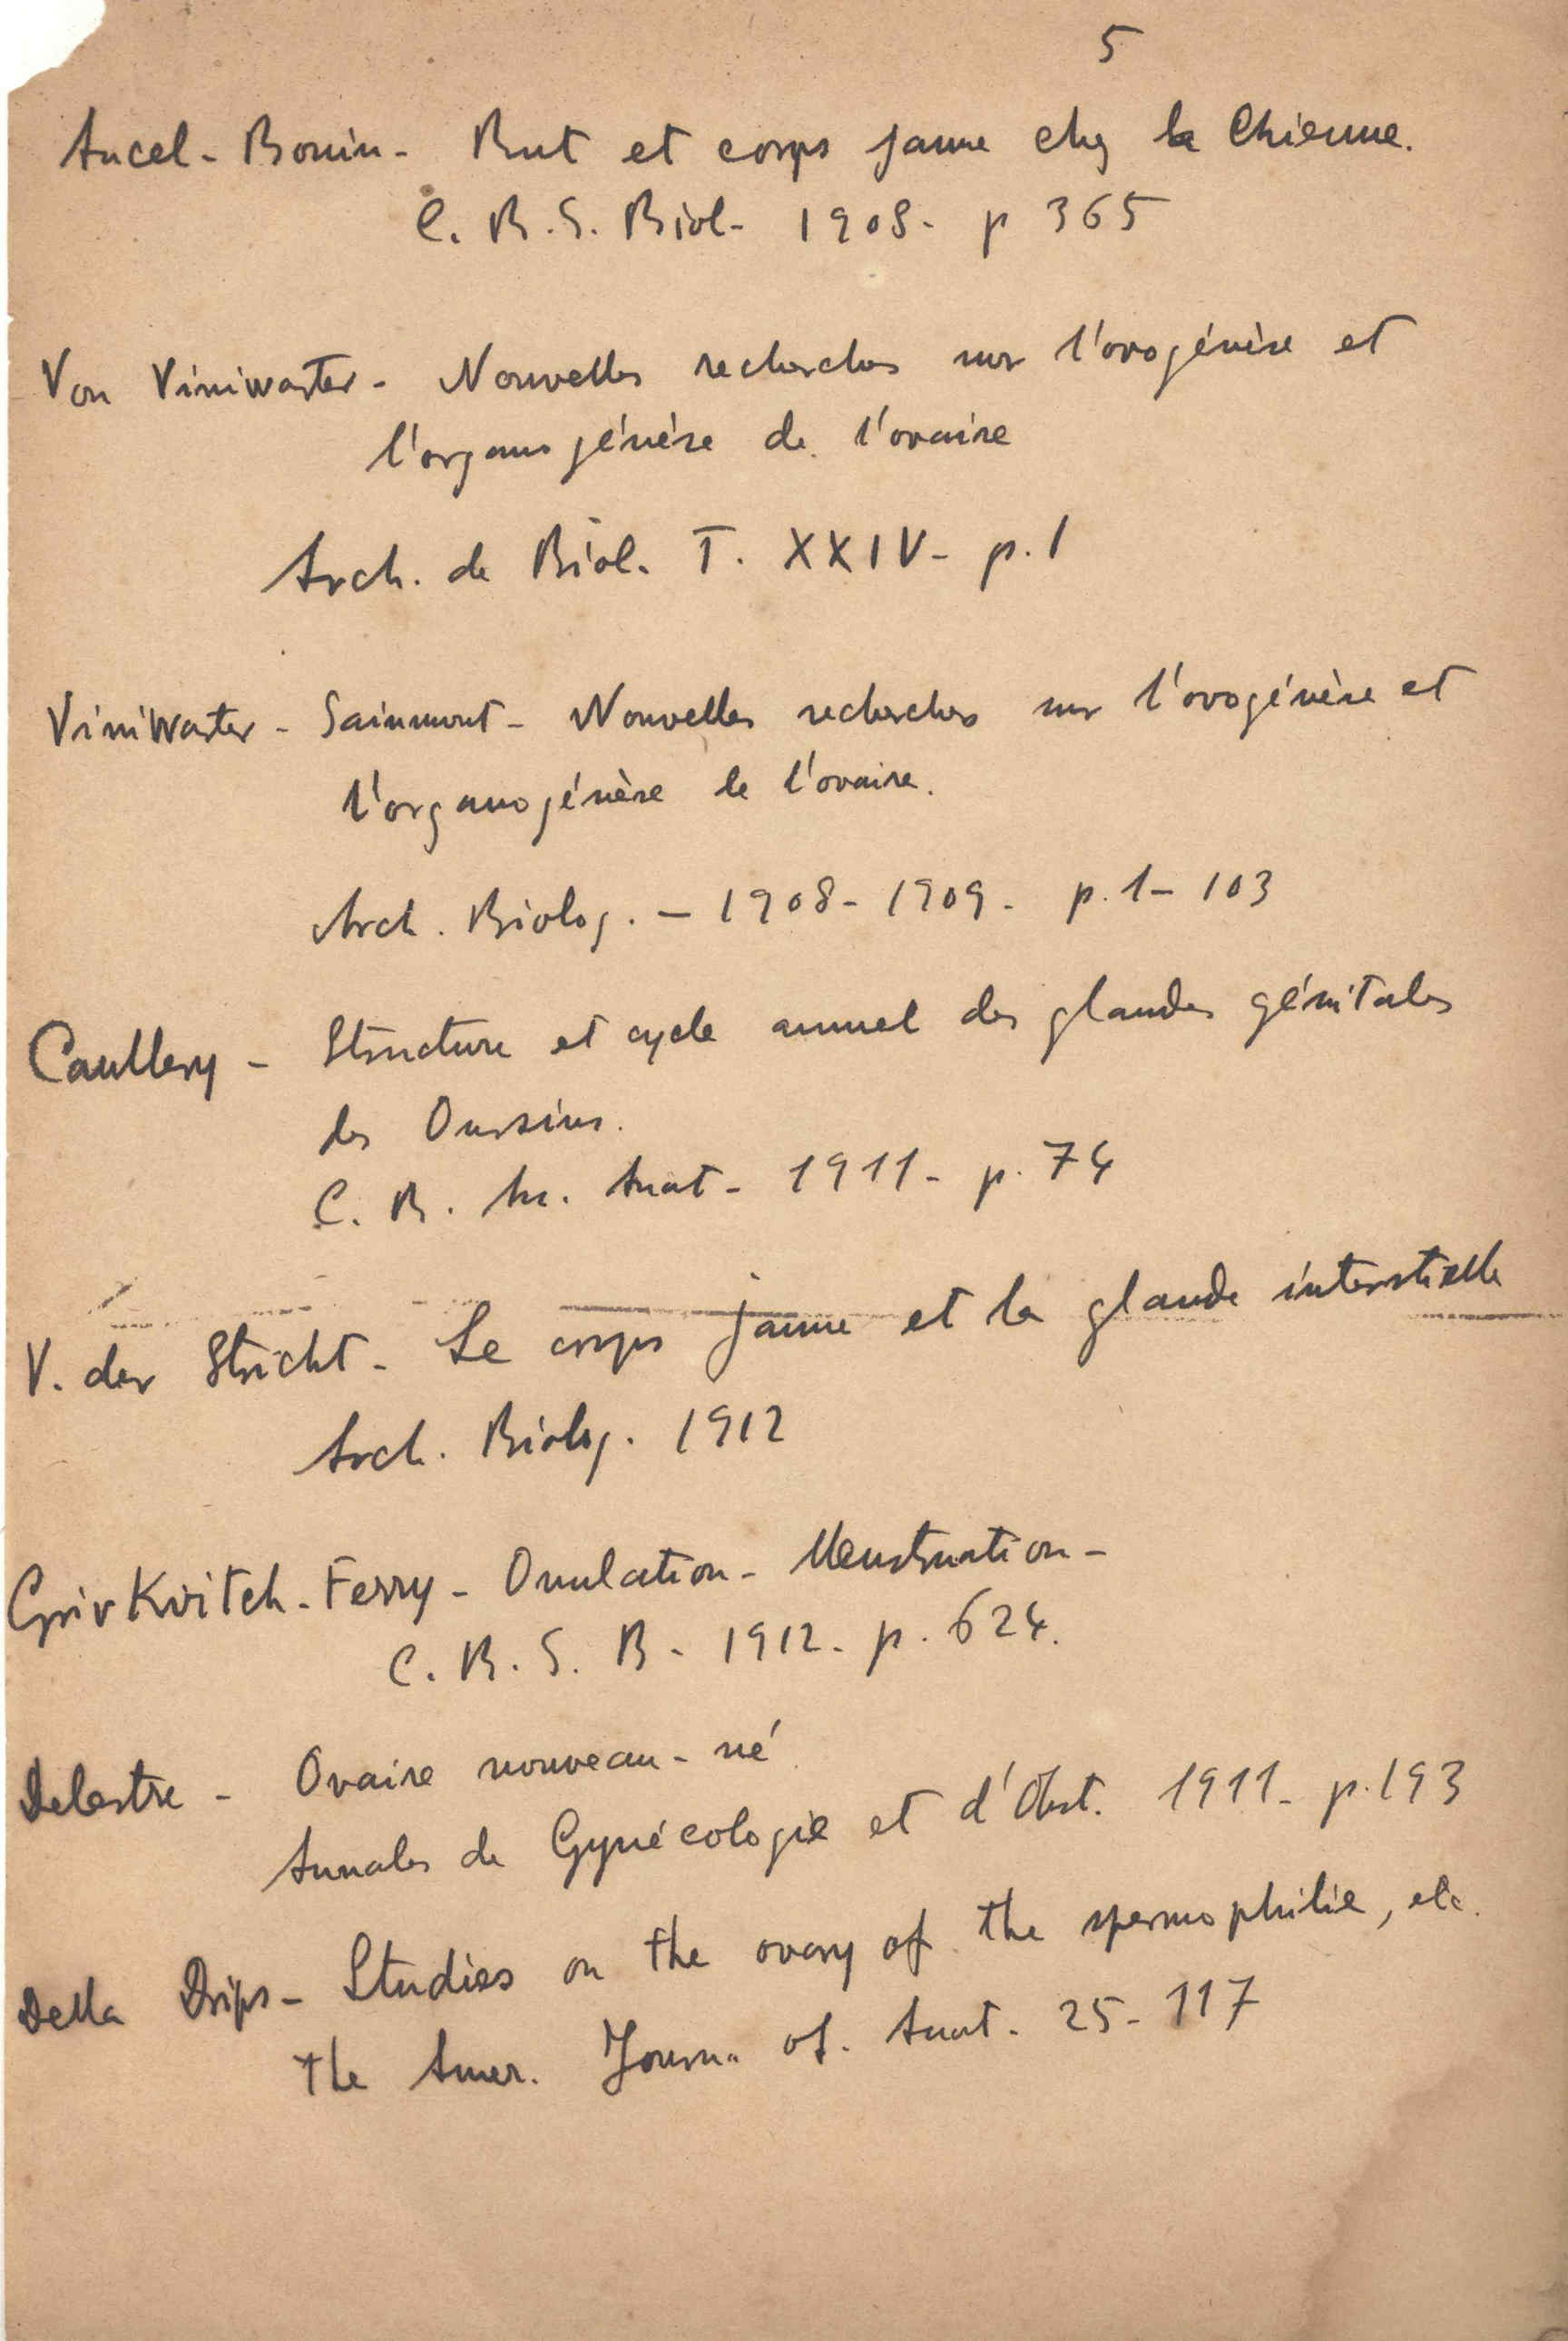 5
Ancel - Bouin - Rut et corps jaune chez la Chienne.
C. R. S. Biol - 1908 - p 365
Von Viniwarter - Nouvelles recherches sur l'ovogénèse et
l'organogénèse de l'ovaire
Arch. de Biol. T. XXIV - p. 1
Viniwarter - Sainmont - Nouvelles recherches sur l'ovogénèse et
l'organogénèse de l'ovaire.
Arch. Biolog. - 1908 - 1909 - p. 1 - 103
Caullery - Structure et cycle annuel des glandes génitales
des Oursins.
C. R. Anat - 1911 - p. 74
V. der Stricht - Le corps jaune et la glande interstielle
Arch. Biolog. 1912
Ferry - Ovulation - Menstruation -
C. R. S. B - 1912 - p. 624.
Delestre - Ovaire nouveau-né
Annales de Gynécologie et d'Obst. 1911 - p. 193
Della Drips - Studies on the ovary of the spermophilie, etc.
the Amer. Journ. of. Anat. 25 - 117